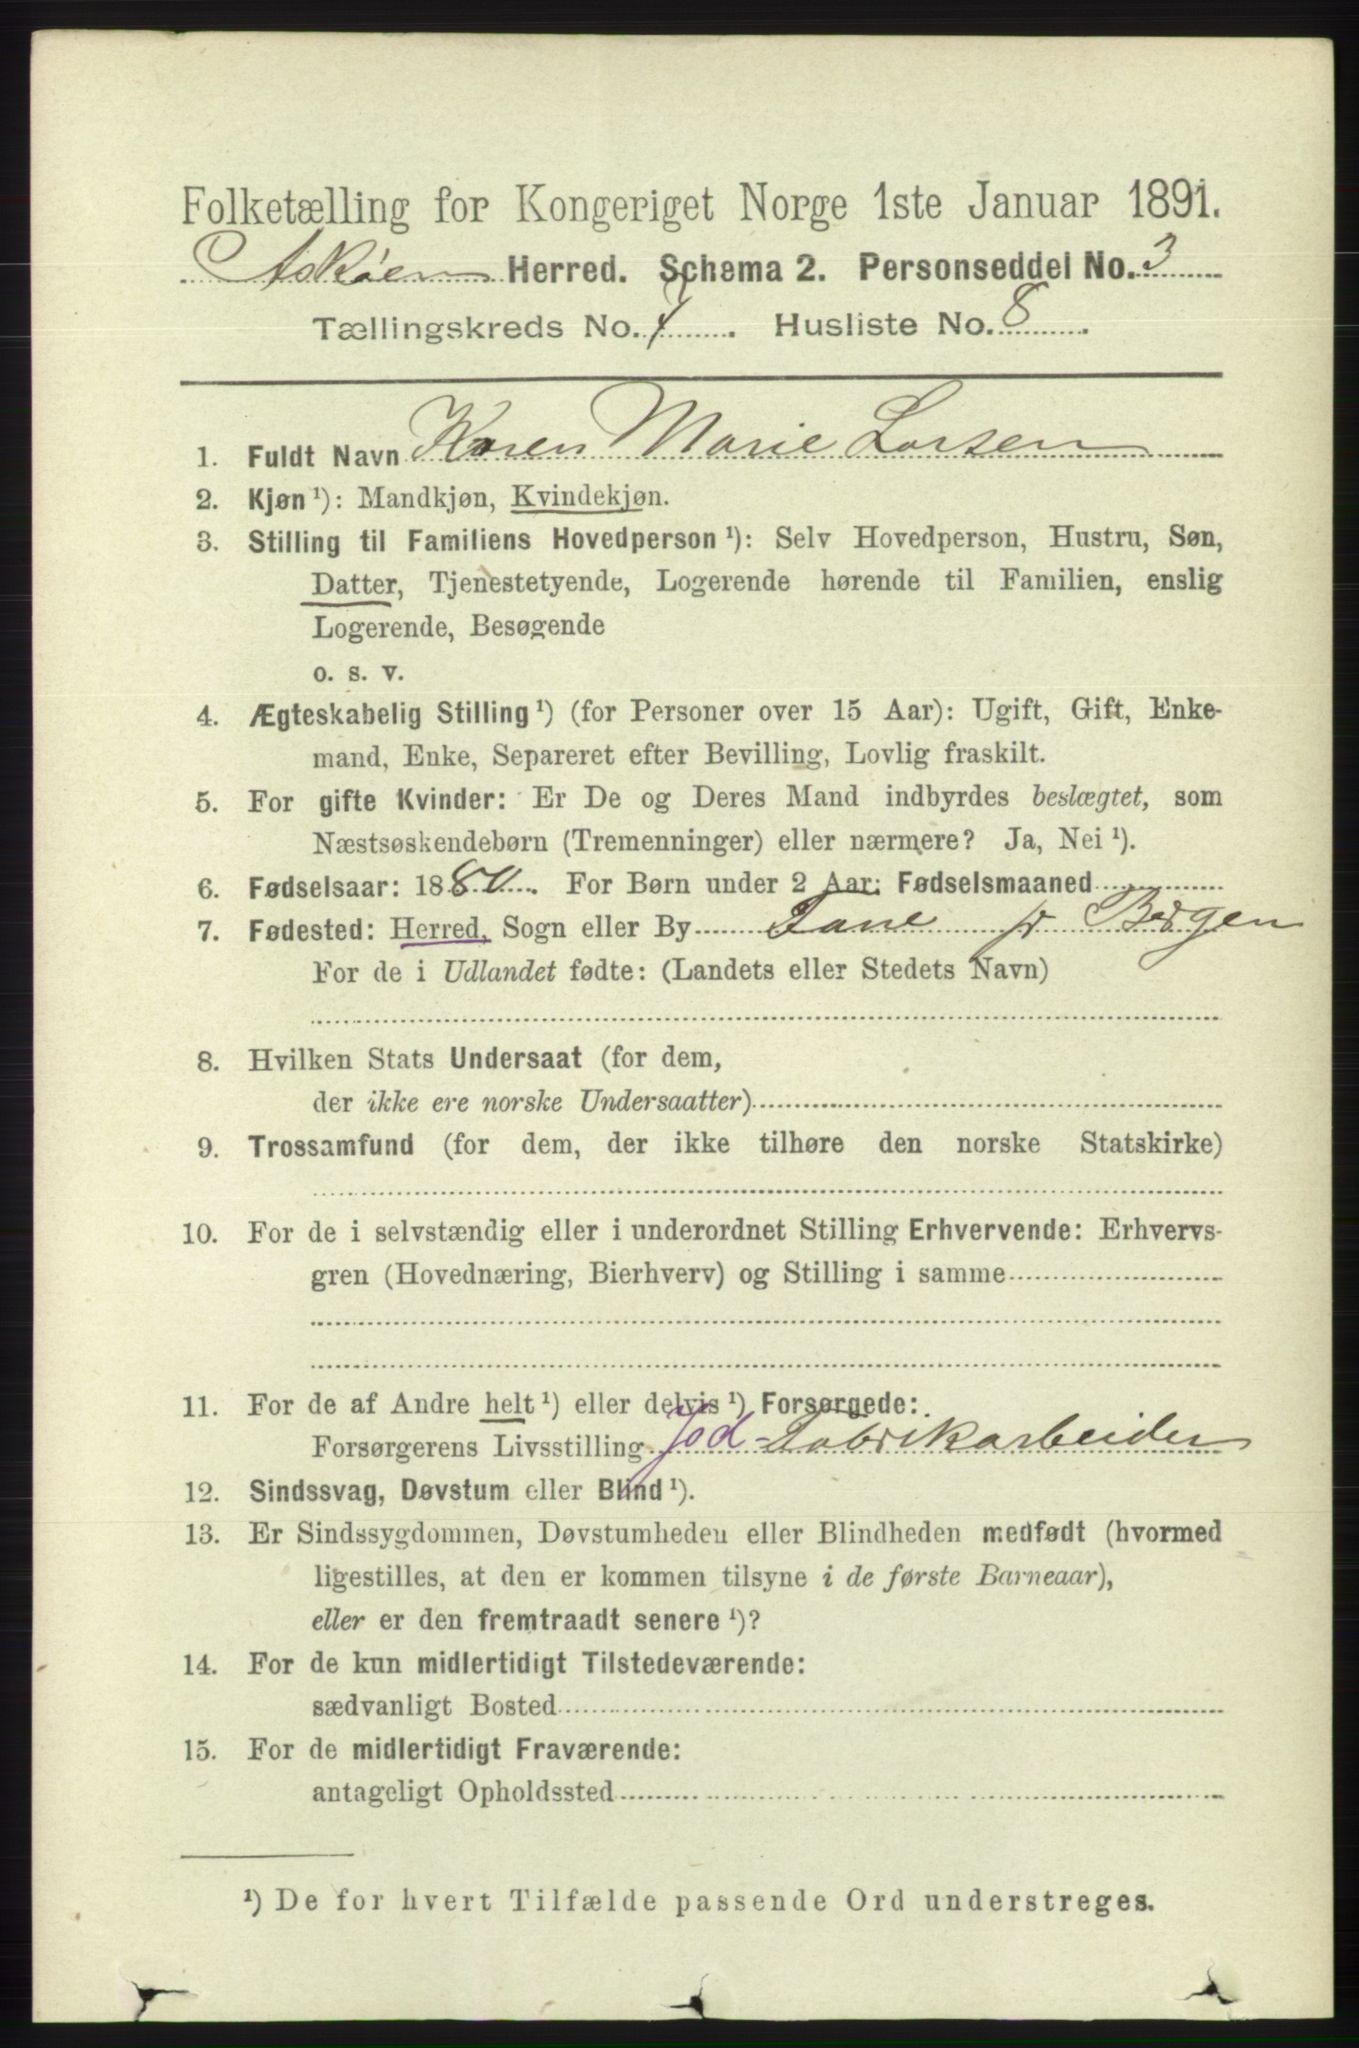 Folketælling for Kongeriget Norge 1ste Januar 1891.
Askøen Herred. Schema 2. Personseddel No. 3
Tællingskreds No. 7. Husliste No. 8.
1. Fuldt Navn Karen Marie Larsen
2. Kjøn ¹): Mandkjøn, Kvindekjøn.
3. Stilling til Familiens Hovedperson ¹): Selv Hovedperson, Hustru, Søn,
Datter, Tjenestetyende, Logerende hørende til Familien, enslig
Logerende, Besøgende
o. s. v.
4. Ægteskabelig Stilling ¹) (for Personer over 15 Aar): Ugift, Gift, Enke-
mand, Enke, Separeret efter Bevilling, Lovlig fraskilt.
5. For gifte Kvinder: Er De og Deres Mand indbyrdes beslægtet, som
Næstsøskendebørn (Tremenninger) eller nærmere? Ja, Nei ¹).
6. Fødselsaar: 1880. For Børn under 2 Aar: Fødselsmaaned
7. Fødested: Herred, Sogn eller By Fane pr Bergen
For de i Udlandet fødte: (Landets eller Stedets Navn)
8. Hvilken Stats Undersaat (for dem,
der ikke ere norske Undersaatter)
9. Trossamfund (for dem, der ikke tilhøre den norske Statskirke)
10. For de i selvstændig eller i underordnet Stilling Erhvervende: Erhvervs-
gren (Hovednæring, Bierhverv) og Stilling i samme
11. For de af Andre helt ¹) eller delvis ¹) Forsørgede:
Forsørgerens Livsstilling Jod-Fabrikarbeider
12. Sindssvag, Døvstum eller Blind ¹).
13. Er Sindssygdommen, Døvstumheden eller Blindheden medfødt (hvormed
ligestilles, at den er kommen tilsyne i de første Barneaar),
eller er den fremtraadt senere ¹)?
14. For de kun midlertidigt Tilstedeværende:
sædvanligt Bosted
15. For de midlertidigt Fraværende:
antageligt Opholdssted
¹) De for hvert Tilfælde passende Ord understreges.